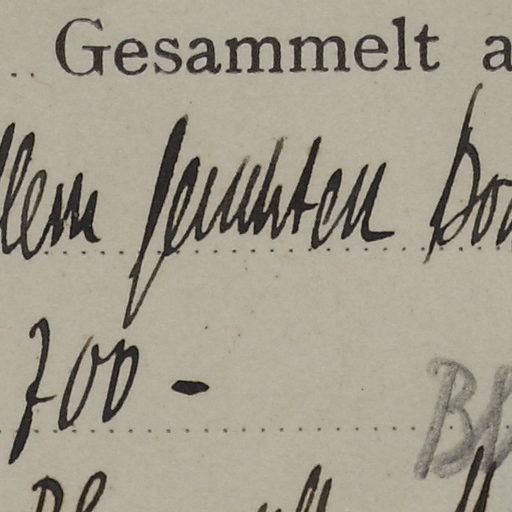 Gesammelt a
llem feuchten Bod
700 -
Bl